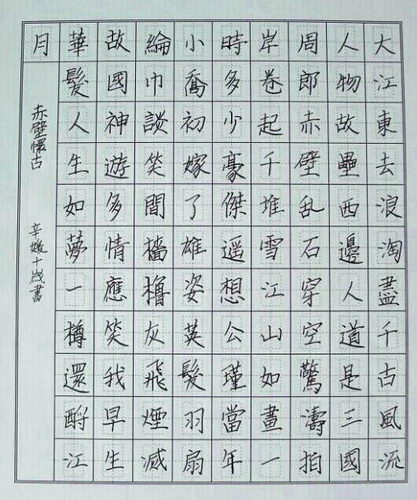 大江東去浪淘盡千古風流
人物故壘西邊人道是三國
周郎赤壁乱石穿空驚濤拍
岸卷起千堆雪江山如畫一
時多少豪傑遥想公瑾當年
小喬初嫁了雄姿英髮羽扇
綸巾談笑間檣櫓灰飛煙滅
故國神遊多情應笑我早生
華髮人生如夢一樽還酹江
月
赤壁懷古
辛媛十歲書